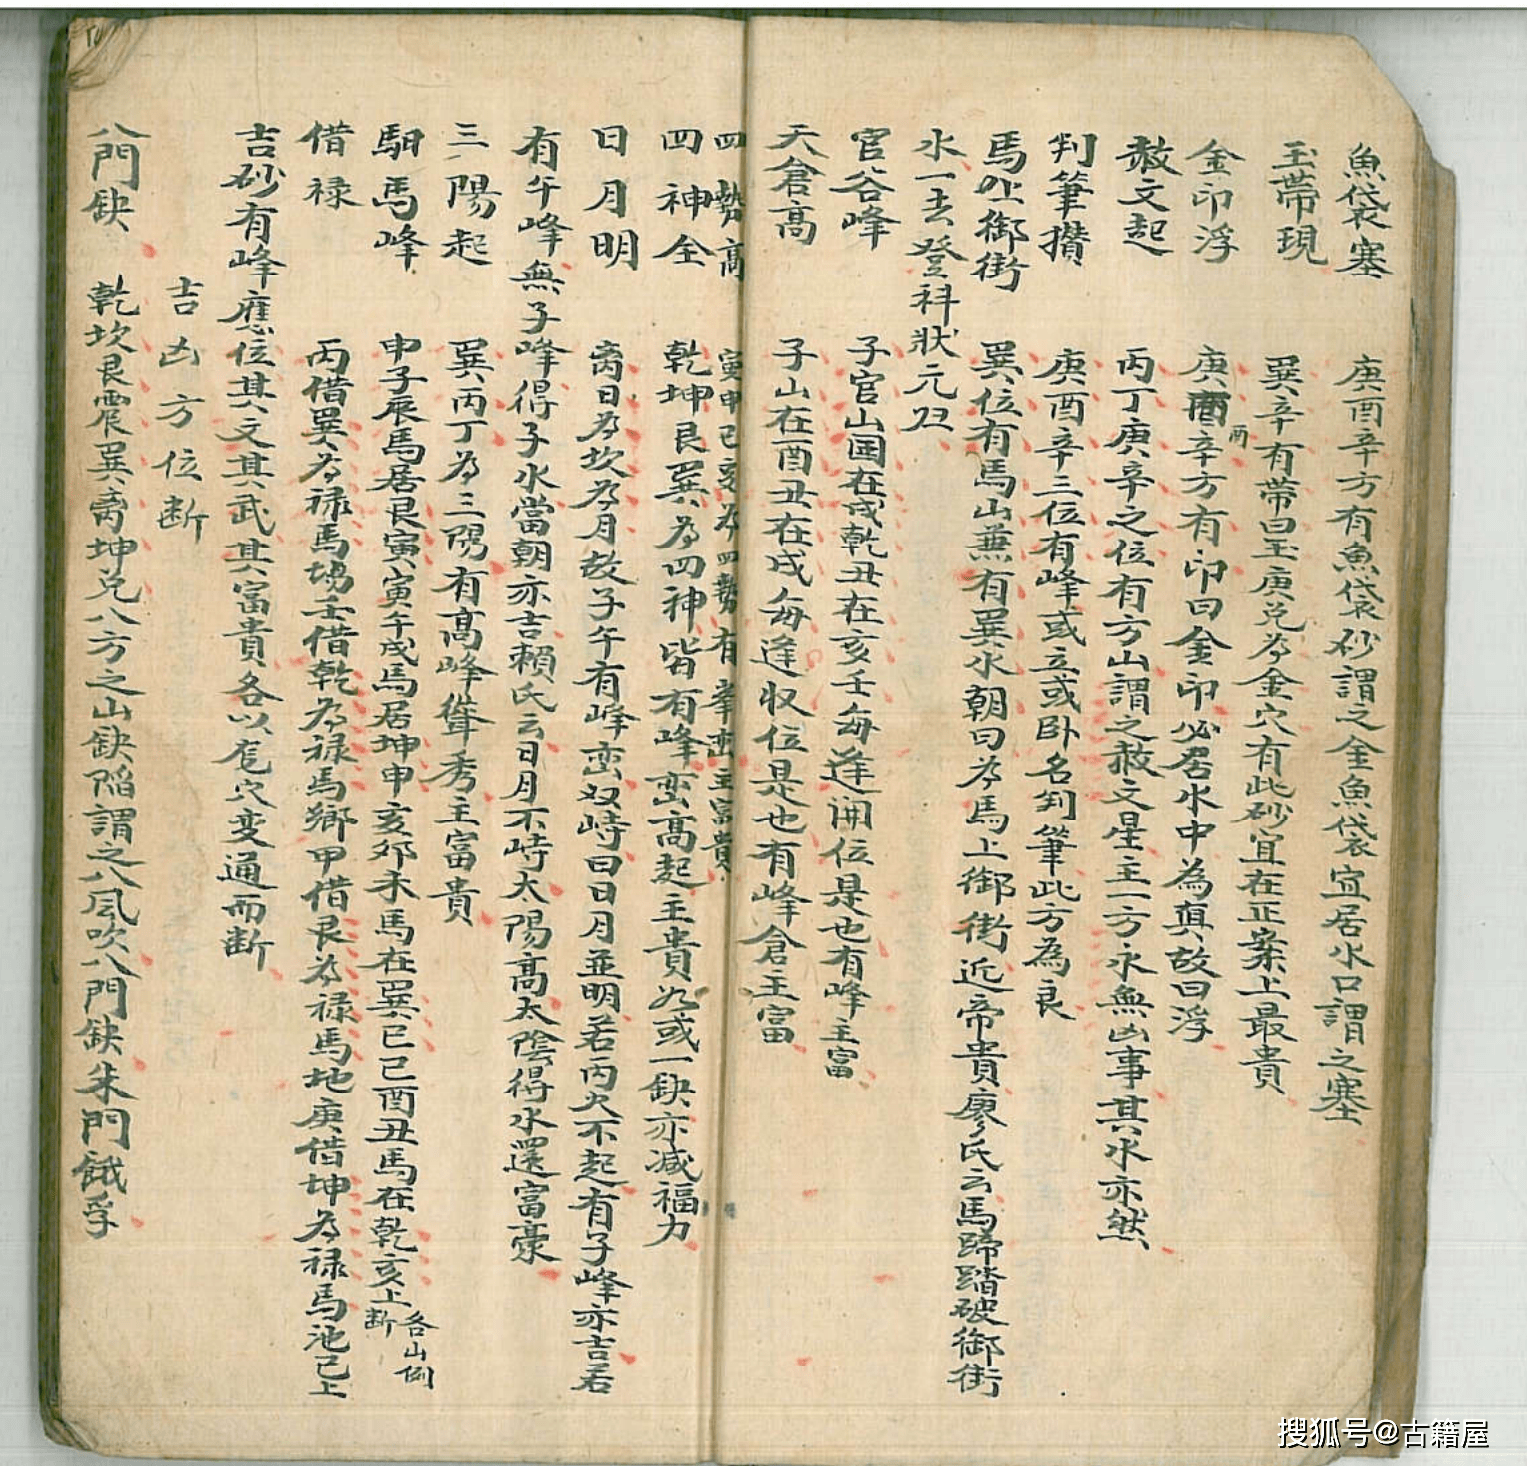 魚袋塞 庚酉辛方有魚袋砂謂之金魚袋宜居水口謂之塞
玉帶現 巽辛有帶曰玉庚兌為金穴有此砂宜在正案上最貴
金印浮 庚酉辛方有印曰金印必居水中為真故曰浮
酉
赦文起 丙丁庚辛之位有方山謂之赦文星主一方永無凶事其水亦然
判筆攢 庚酉辛三位有峰或立或卧名判筆此方為良
馬上御街 巽位有馬山兼有巽水朝曰為馬上御街近帝貴廖氏云馬蹄踏破御街
水一去登科狀元
官谷峰 子官山围在戌乾丑在亥壬每逢開位是也有峰主富
天倉高 子山在酉丑在戌每逢収位是也有峰倉主富
四勢高 寅申巳亥為四勢有峯巒主富貴
四神全 乾坤艮巽為四神皆有峰峦高起主貴如或一缺亦减福力
日月明 离日為坎為月故子午有峰峦双峙曰日月並明若丙火不起有子峰亦吉若
有午峰無子峰得子水當朝亦吉賴氏云日月不峙太陽高太陰得水還富豪
三陽起 巽丙丁為三陽有高峰聳秀主富貴
馹馬峰 申子辰馬居艮寅寅午戌馬居坤申亥卯未馬在巽巳巳酉丑馬在乾亥上各山例断
借禄 丙借巽為禄馬塲壬借乾為禄馬鄉甲借艮為禄馬地庚借坤為禄馬池已上
吉砂有峰應位其文其武其富貴各以龙穴变通而断
吉凶方位断
八門缺 乾坎艮震巽离坤兌八方之山缺陷謂之八風吹八門缺朱門餓孚
搜狐号@古籍屋